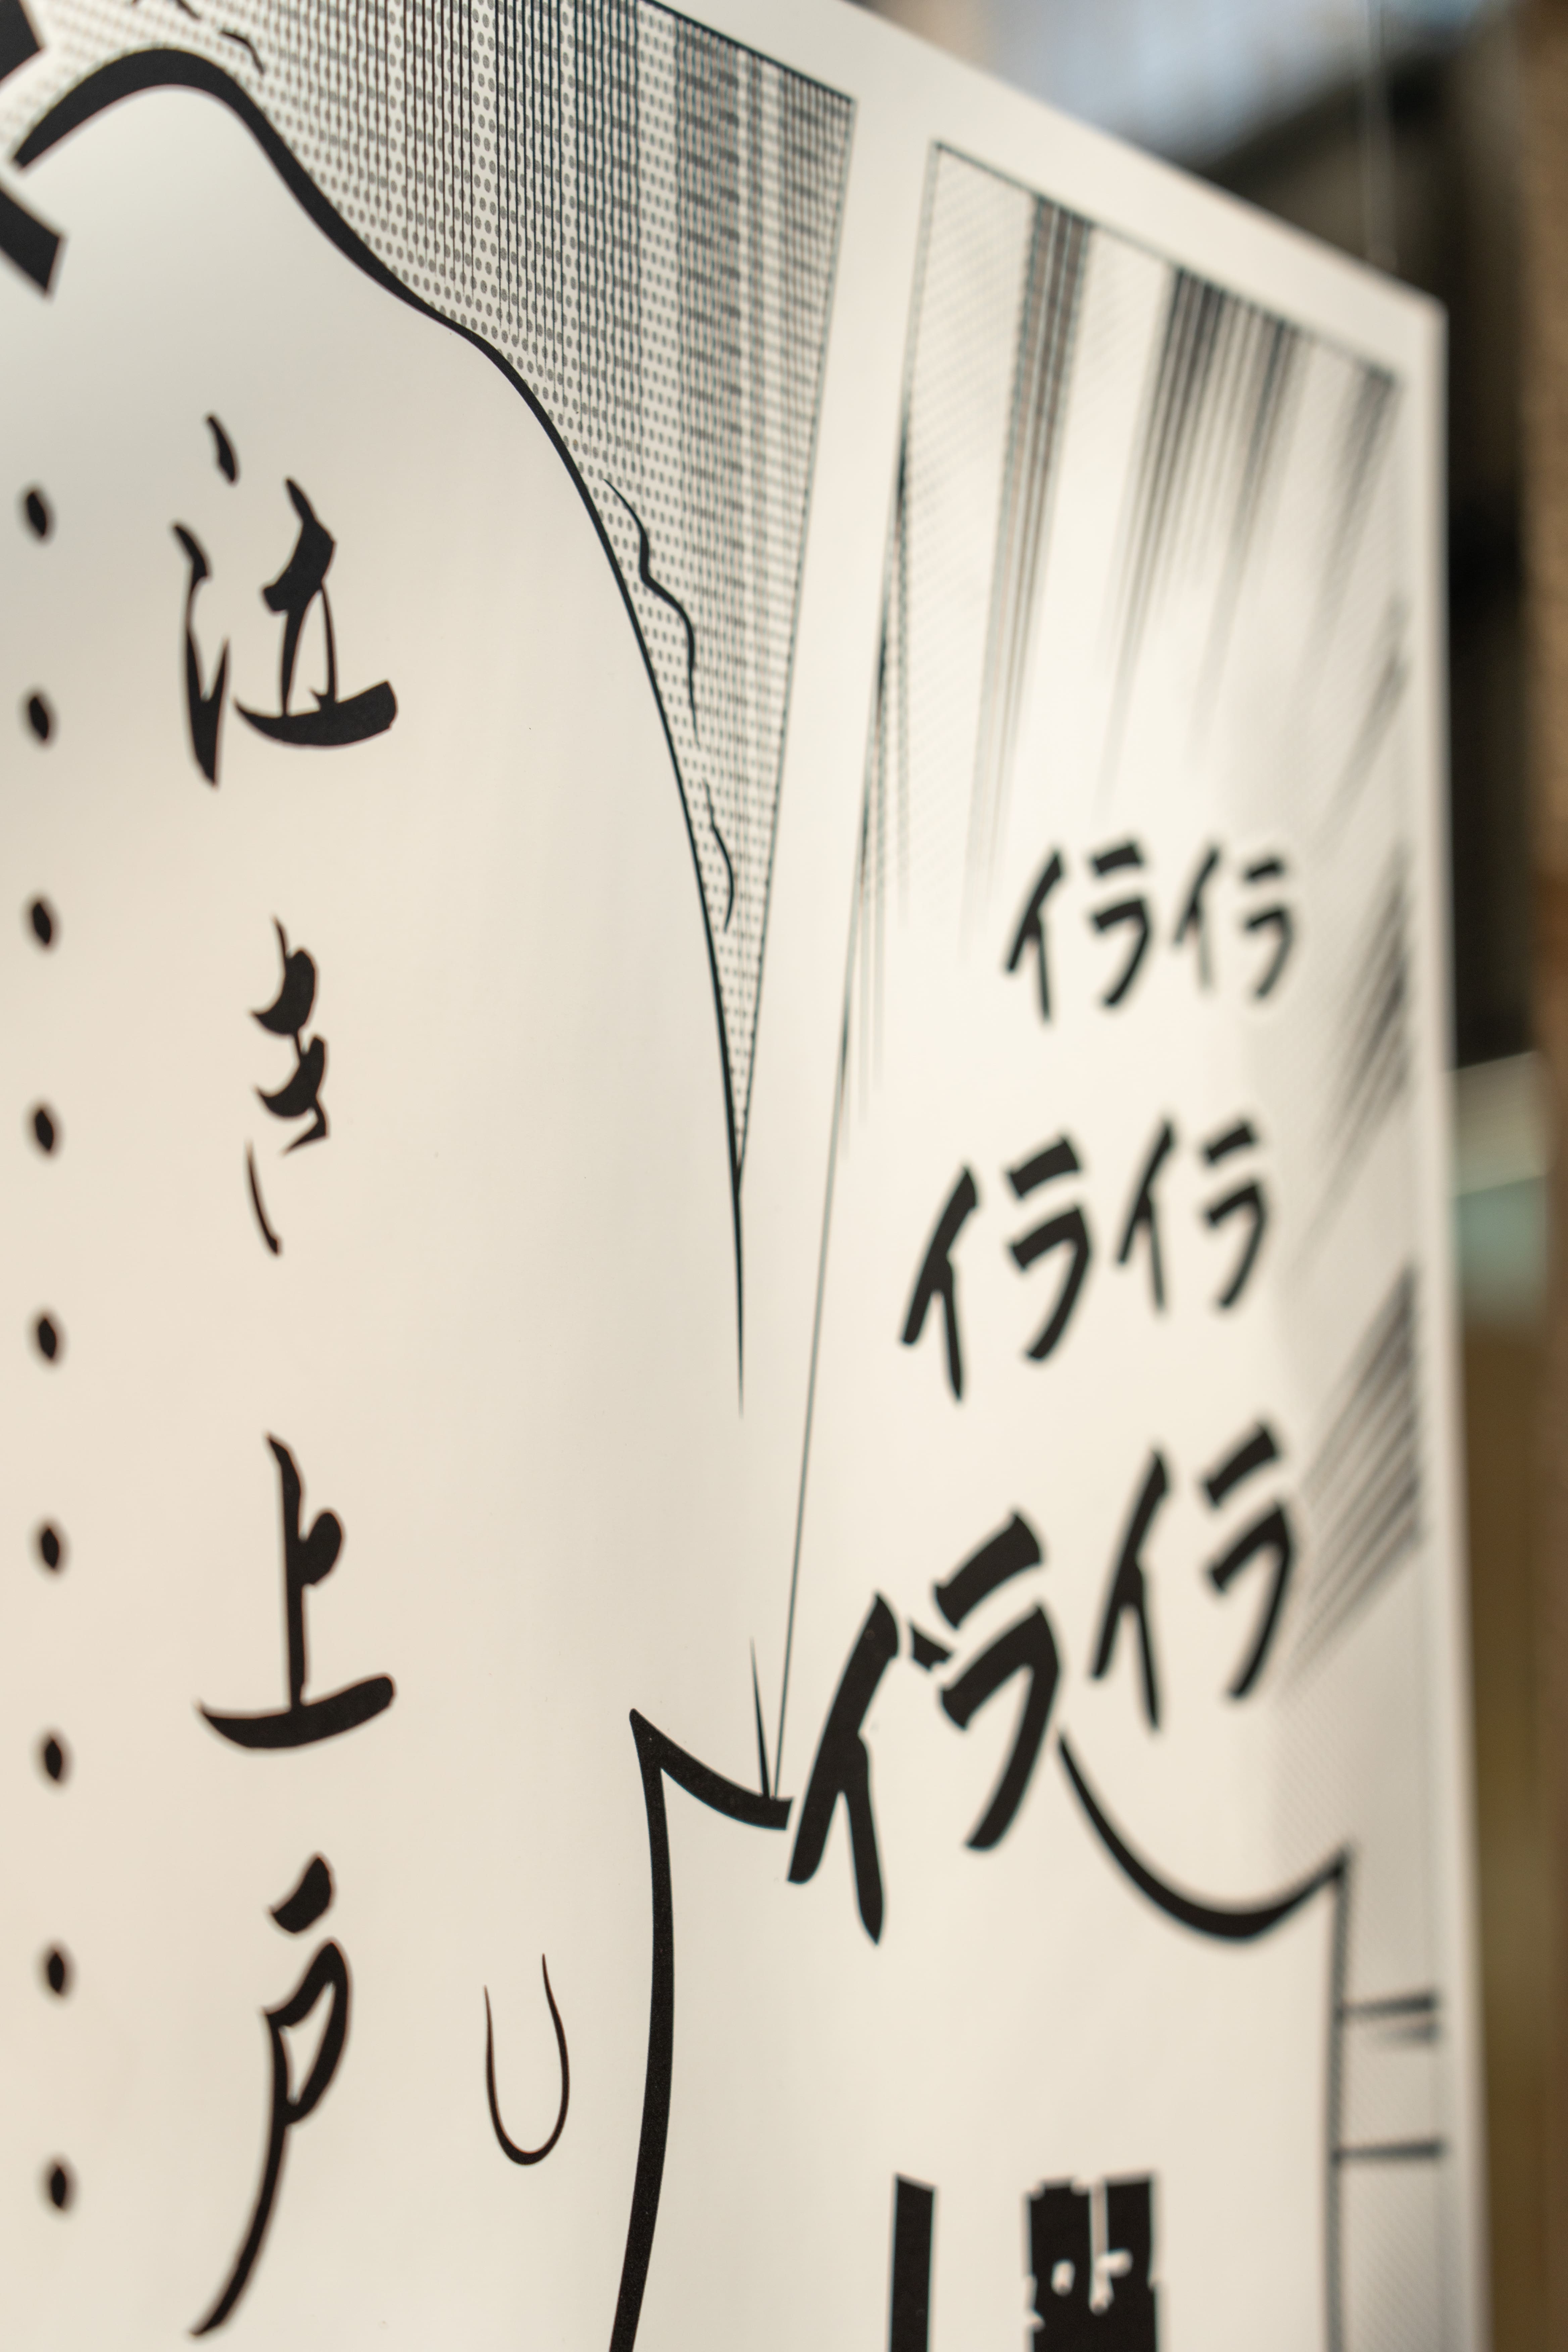 イライラ
イライラ
イライラ
泣き上戸